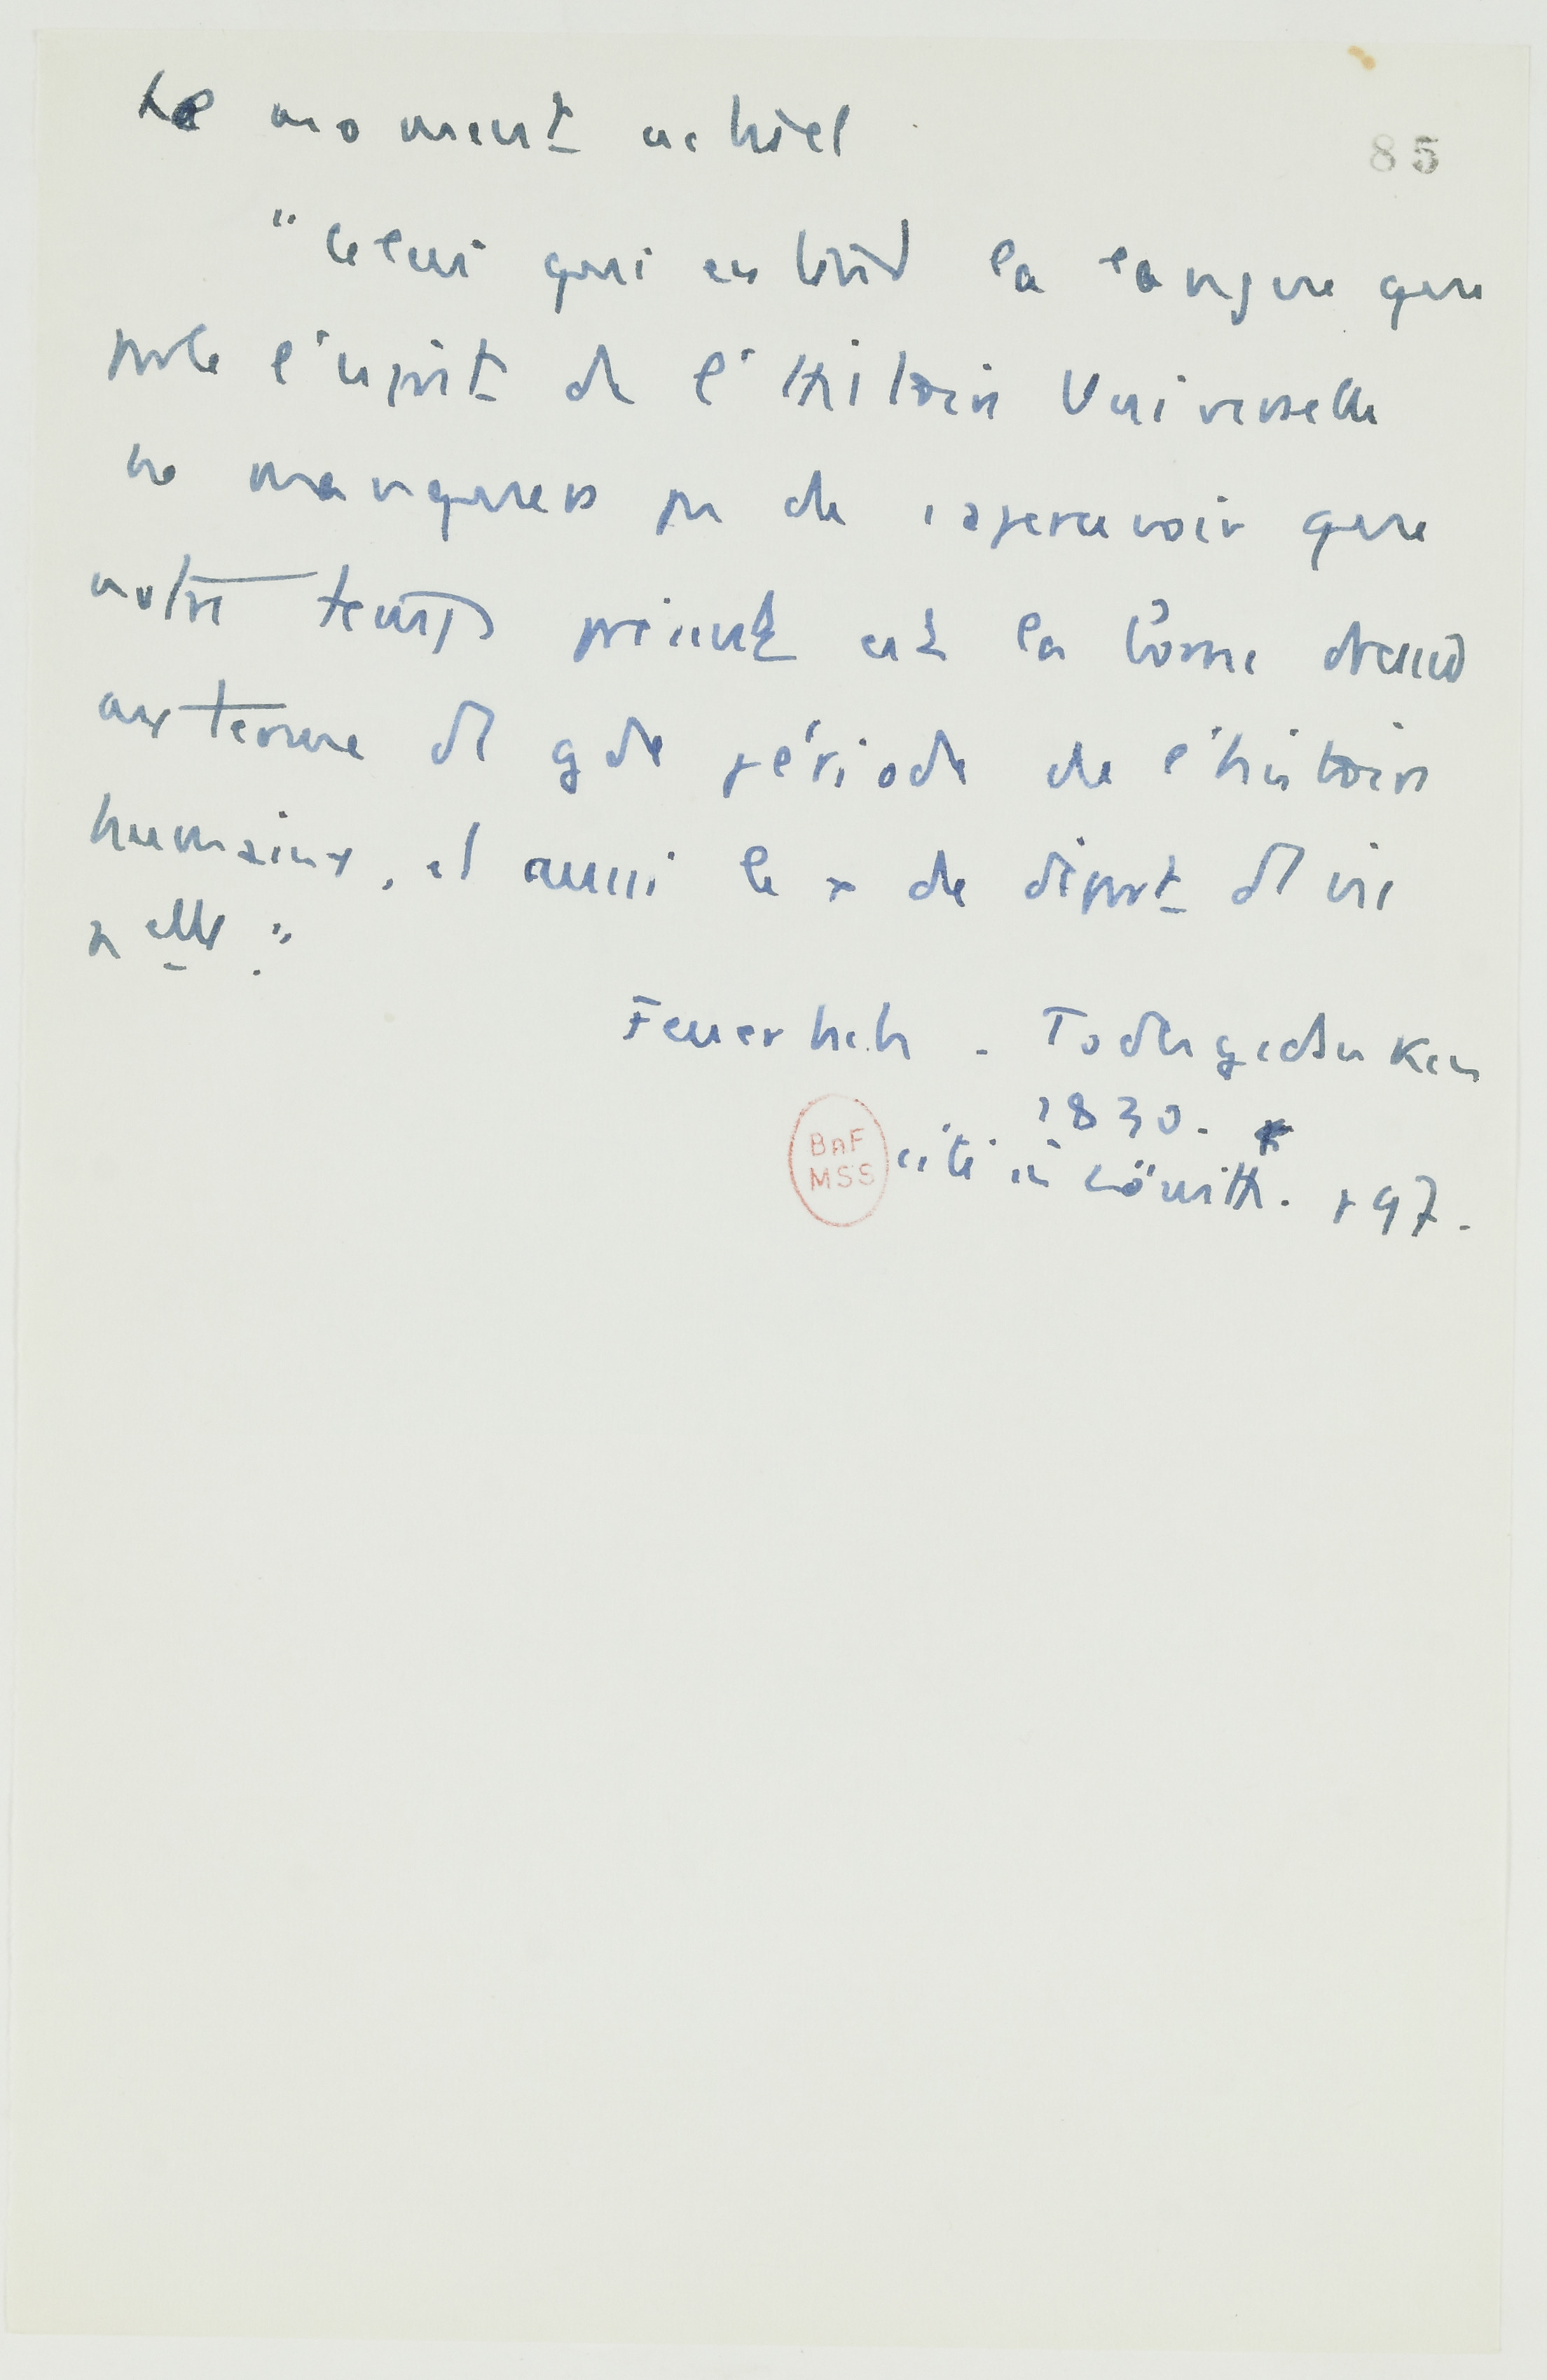 Le moment actuel
85
"Celui qui entend la langue que
parle l'esprit de l'Histoire Universelle
ne manquera pas de s'apercevoir que
notre temps présent est la borne
au terme d'1 gde période de l'histoire
humaine, et aussi le x de départ d'1 vie
nelle."
Feuerbach - Todesgedanken
1830.
cité in Löwith. p 97.
BnF
MSS